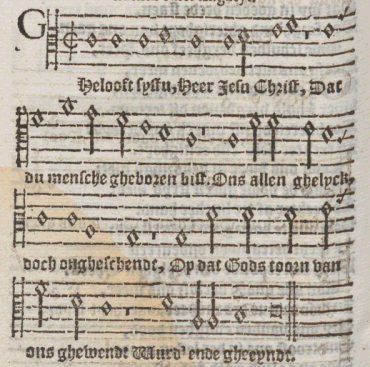 Ghelooft systu, Heer Jesu Christ, Dat
du mensche gheboren bist. Ons allen ghelyck,
doch ongheschendt, Op dat Gods toorn van
ons ghewendt Wurd' ende gheeyndt.